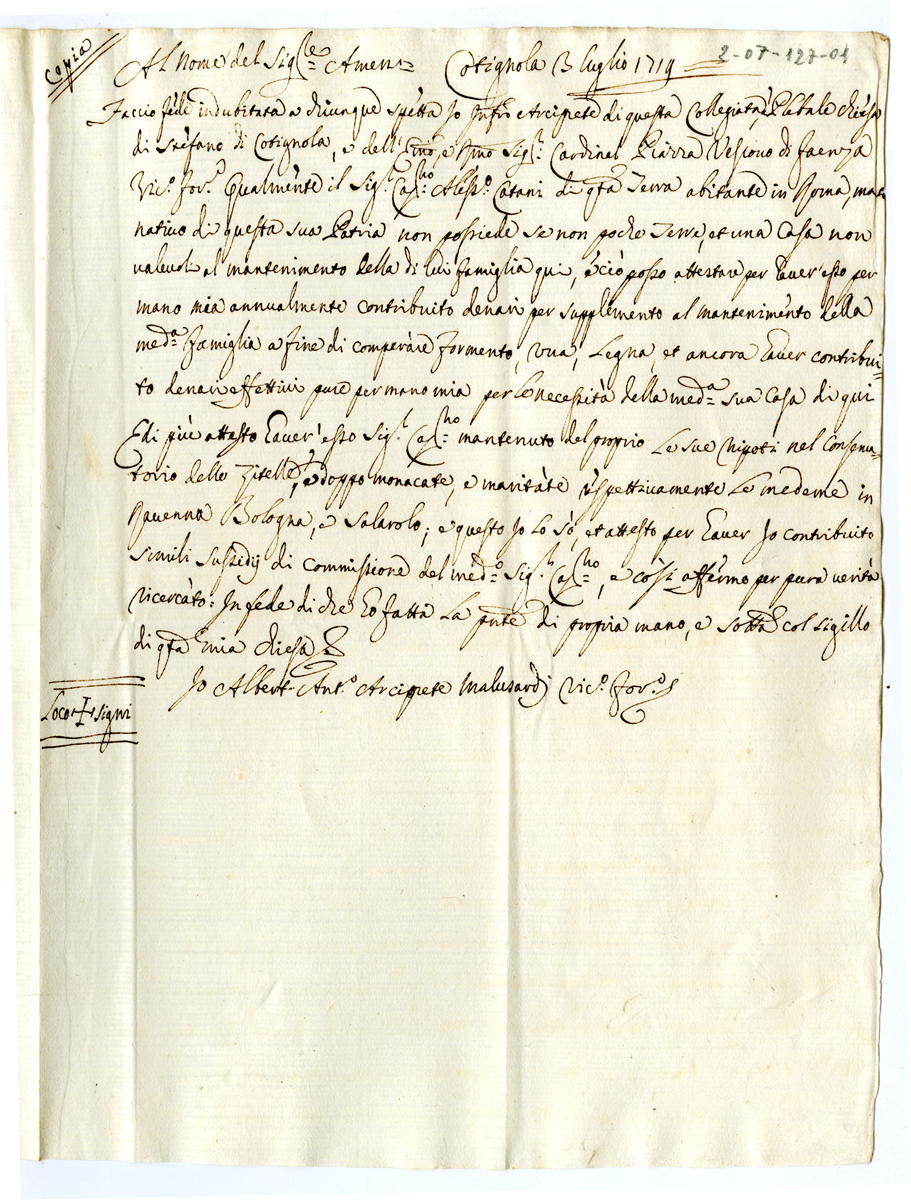 Copia
Al Nome del Sig:re Amen: Cotignola 3 luglio 1719
2-07-127-01
Faccio fede indubitata a chiunque spetta Jo Infro Arciprete di questa Collegiata, e Plebale Chiesa
di Stefano di Cotignola, e dell'Emo, e Rmo Sig:r Cardinal Piazza Vescovo di Faenza
Vic:o for:o qualmente il Sig:r Cap:no Aless:o Catani di qta Terra abitante in Roma, ma
nativo di questa sua Patria non possiede se non poche Terre, et una Casa non
valevoli al mantenimento della di lui famiglia qui, e ciò posso attestare per haver esso per
mano mia annualmente contribuito denari per supplemento al mantenimento della
med:a famiglia a fine di comperare formento, vua, legna, et ancora haver contribui=
to denari effettivi pure per mano mia per le necessità della med:a sua Casa di qui
E di più attesto haver esso Sig:r Cap:no mantenuto del proprio le sue Nipoti nel Conserva=
torio delle Zitelle, e doppo monacate, e maritate rispettivamente le medeme in
Ravenna Bologna, e Salarolo; e questo Jo lo so, et attesto per haver Jo contribuito
simili sussidij di commissione del med:o Sig:r Cap:no, e così affermo per pura verità
ricercato: In fede di che hò fatta la pnte di propria mano, e sotta col sigillo
di qta mia Chiesa
Jo Albert. Ant:o Arciprete Malusardj Vic:o for:o
Loco + signi